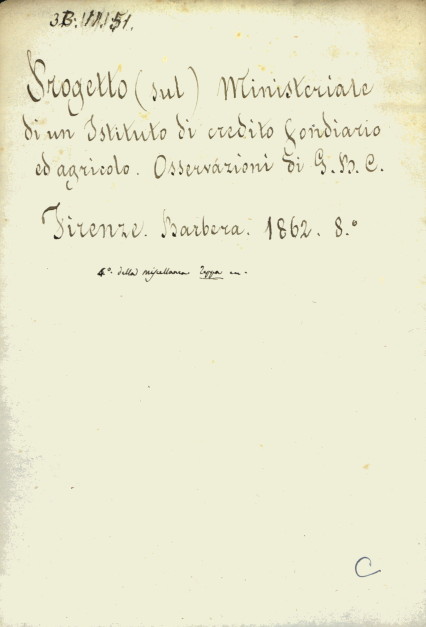 3.B.III.151.
Progetto (sul) Ministeriale
di un Istituto di credito fondiario
ed agricolo. Osservazioni di G. B. C.
Firenze. Barbera. 1862. 8.°
4°. della miscellanea
C